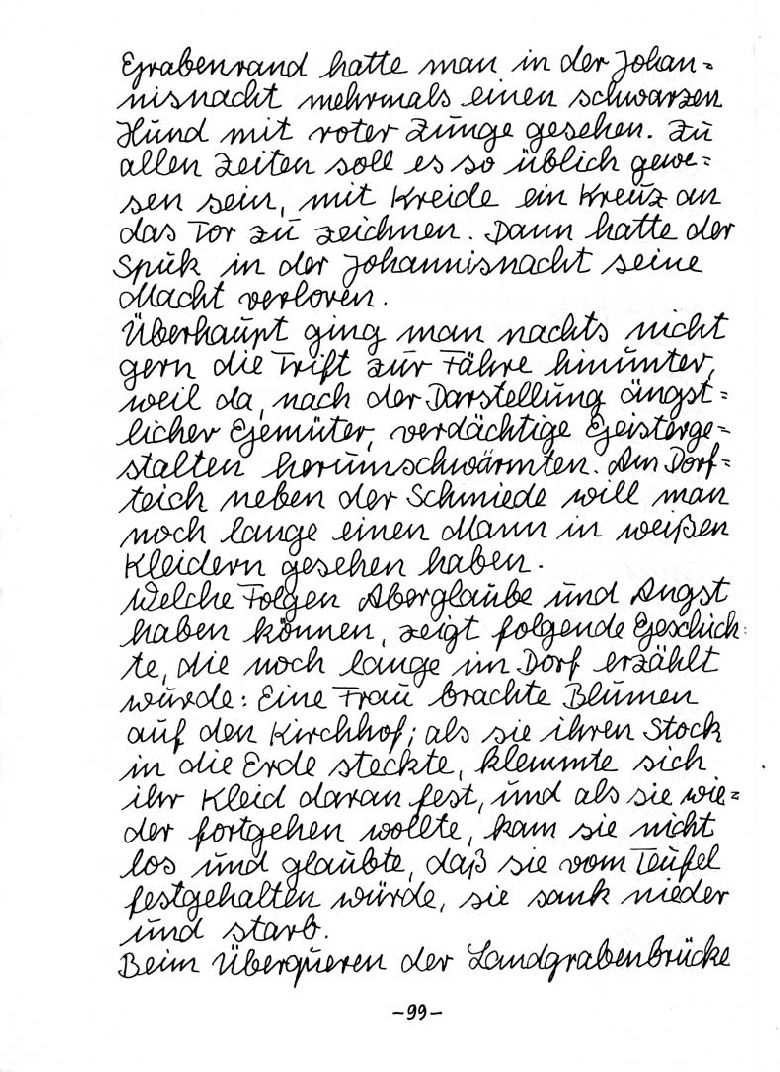 Grabenrand hatte man in der Johan=
nisnacht mehrmals einen schwarzen
Hund mit roter Zunge gesehen. Zu
allen Zeiten soll es so üblich gewe=
sen sein, mit Kreide ein Kreuz an
das Tor zu zeichnen. Dann hatte der
Spuk in der Johannisnacht seine
Macht verloren.
Überhaupt ging man nachts nicht
gern die Trift zur Fähre hinunter,
weil da, nach der Darstellung ängst=
licher Gemüter, verdächtige Geisterge=
stalten herumschwärmten. Am Dorf=
teich neben der Schmiede will man
noch lange einen Mann in weißen
Kleidern gesehen haben.
Welche Folgen Aberglaube und Angst
haben können, zeigt folgende Geschich=
te, die noch lange im Dorf erzählt
wurde: Eine Frau brachte Blumen
auf den Kirchhof; als sie ihren Stock
in die Erde steckte, klemmte sich
ihr Kleid daran fest, und als sie wie=
der fortgehen wollte, kam sie nicht
los und glaubte, daß sie vom Teufel
festgehalten würde, sie sank nieder
und starb.
Beim Überqueren der Landgrabenbrücke
-99-